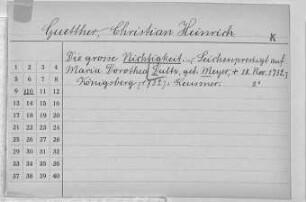 Guetther, Christian Heinrich
K
Die grosse Nichtigkeit... Leichenpredigt auf
Maria Dorothea Lults, geb. Meyer, + 18. Nov. 1732,
Königsberg, (1732), Reusner. 2°
1 2 3 4
5 6 7 8
9 10 11 12
13 14 15 16
17 18 19 20
21 22 23 24
25 26 27 28
29 30 31 32
33 34 35 36
37 38 39 40